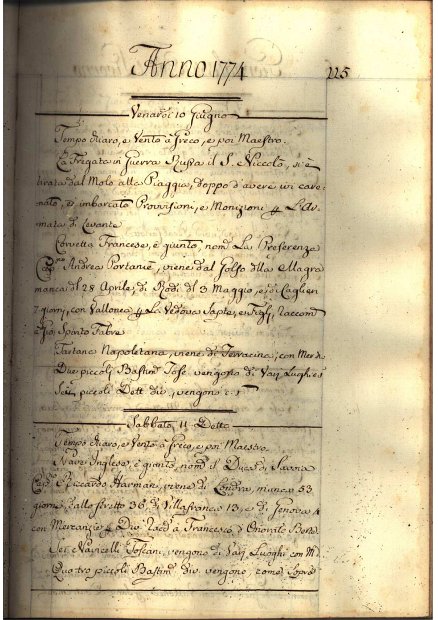 Anno 1774
225
Venardì 10 Giugno
Tempo chiaro, e Vento à Greco, e poi Maestro.
La Fregata in Guerra Russa il S. Niccolò, si è
tirata dal Molo alla Piaggia, doppo d'avere ivi care-
nato, ed imbarcato Provvisioni, e Monizioni p L'Ar-
mata di Levante
Corvetta Francese, è giunta, nom La Preferenza
Cap Andrea Portaniè, viene dal Golfo della Magra
manca di 28 Aprile, di Rodi di 3 Maggio, e di Caglieri
7 giorni, con Vallonea p La Vedova Sapte, e Figli, raccom
Spirito Fabre
Tartana Napoletana, viene di Terracina, con Mer
Die piccoli Bastim Tosc. vengono di Varj Lughi
piccoli Dett div vengono c. s.
Sabbato 11 Detto
Tempo chiaro, e Vento à Greco, e poi Maestro
Nave Inglese, è giunta, nom S Duca di Savoia
Cap Riccardo Harman, viene di Londra, manca 53
giorni, dallo stretto 36, di Villafranca 13, e di Genova
con Mercanzie p Div Racd à Francesco, d'Onorato Berte
Sei Navicelli Toscani, vengono di Varj Luoghi con M
Quatro piccoli Bastim div. vengono, come Sopra